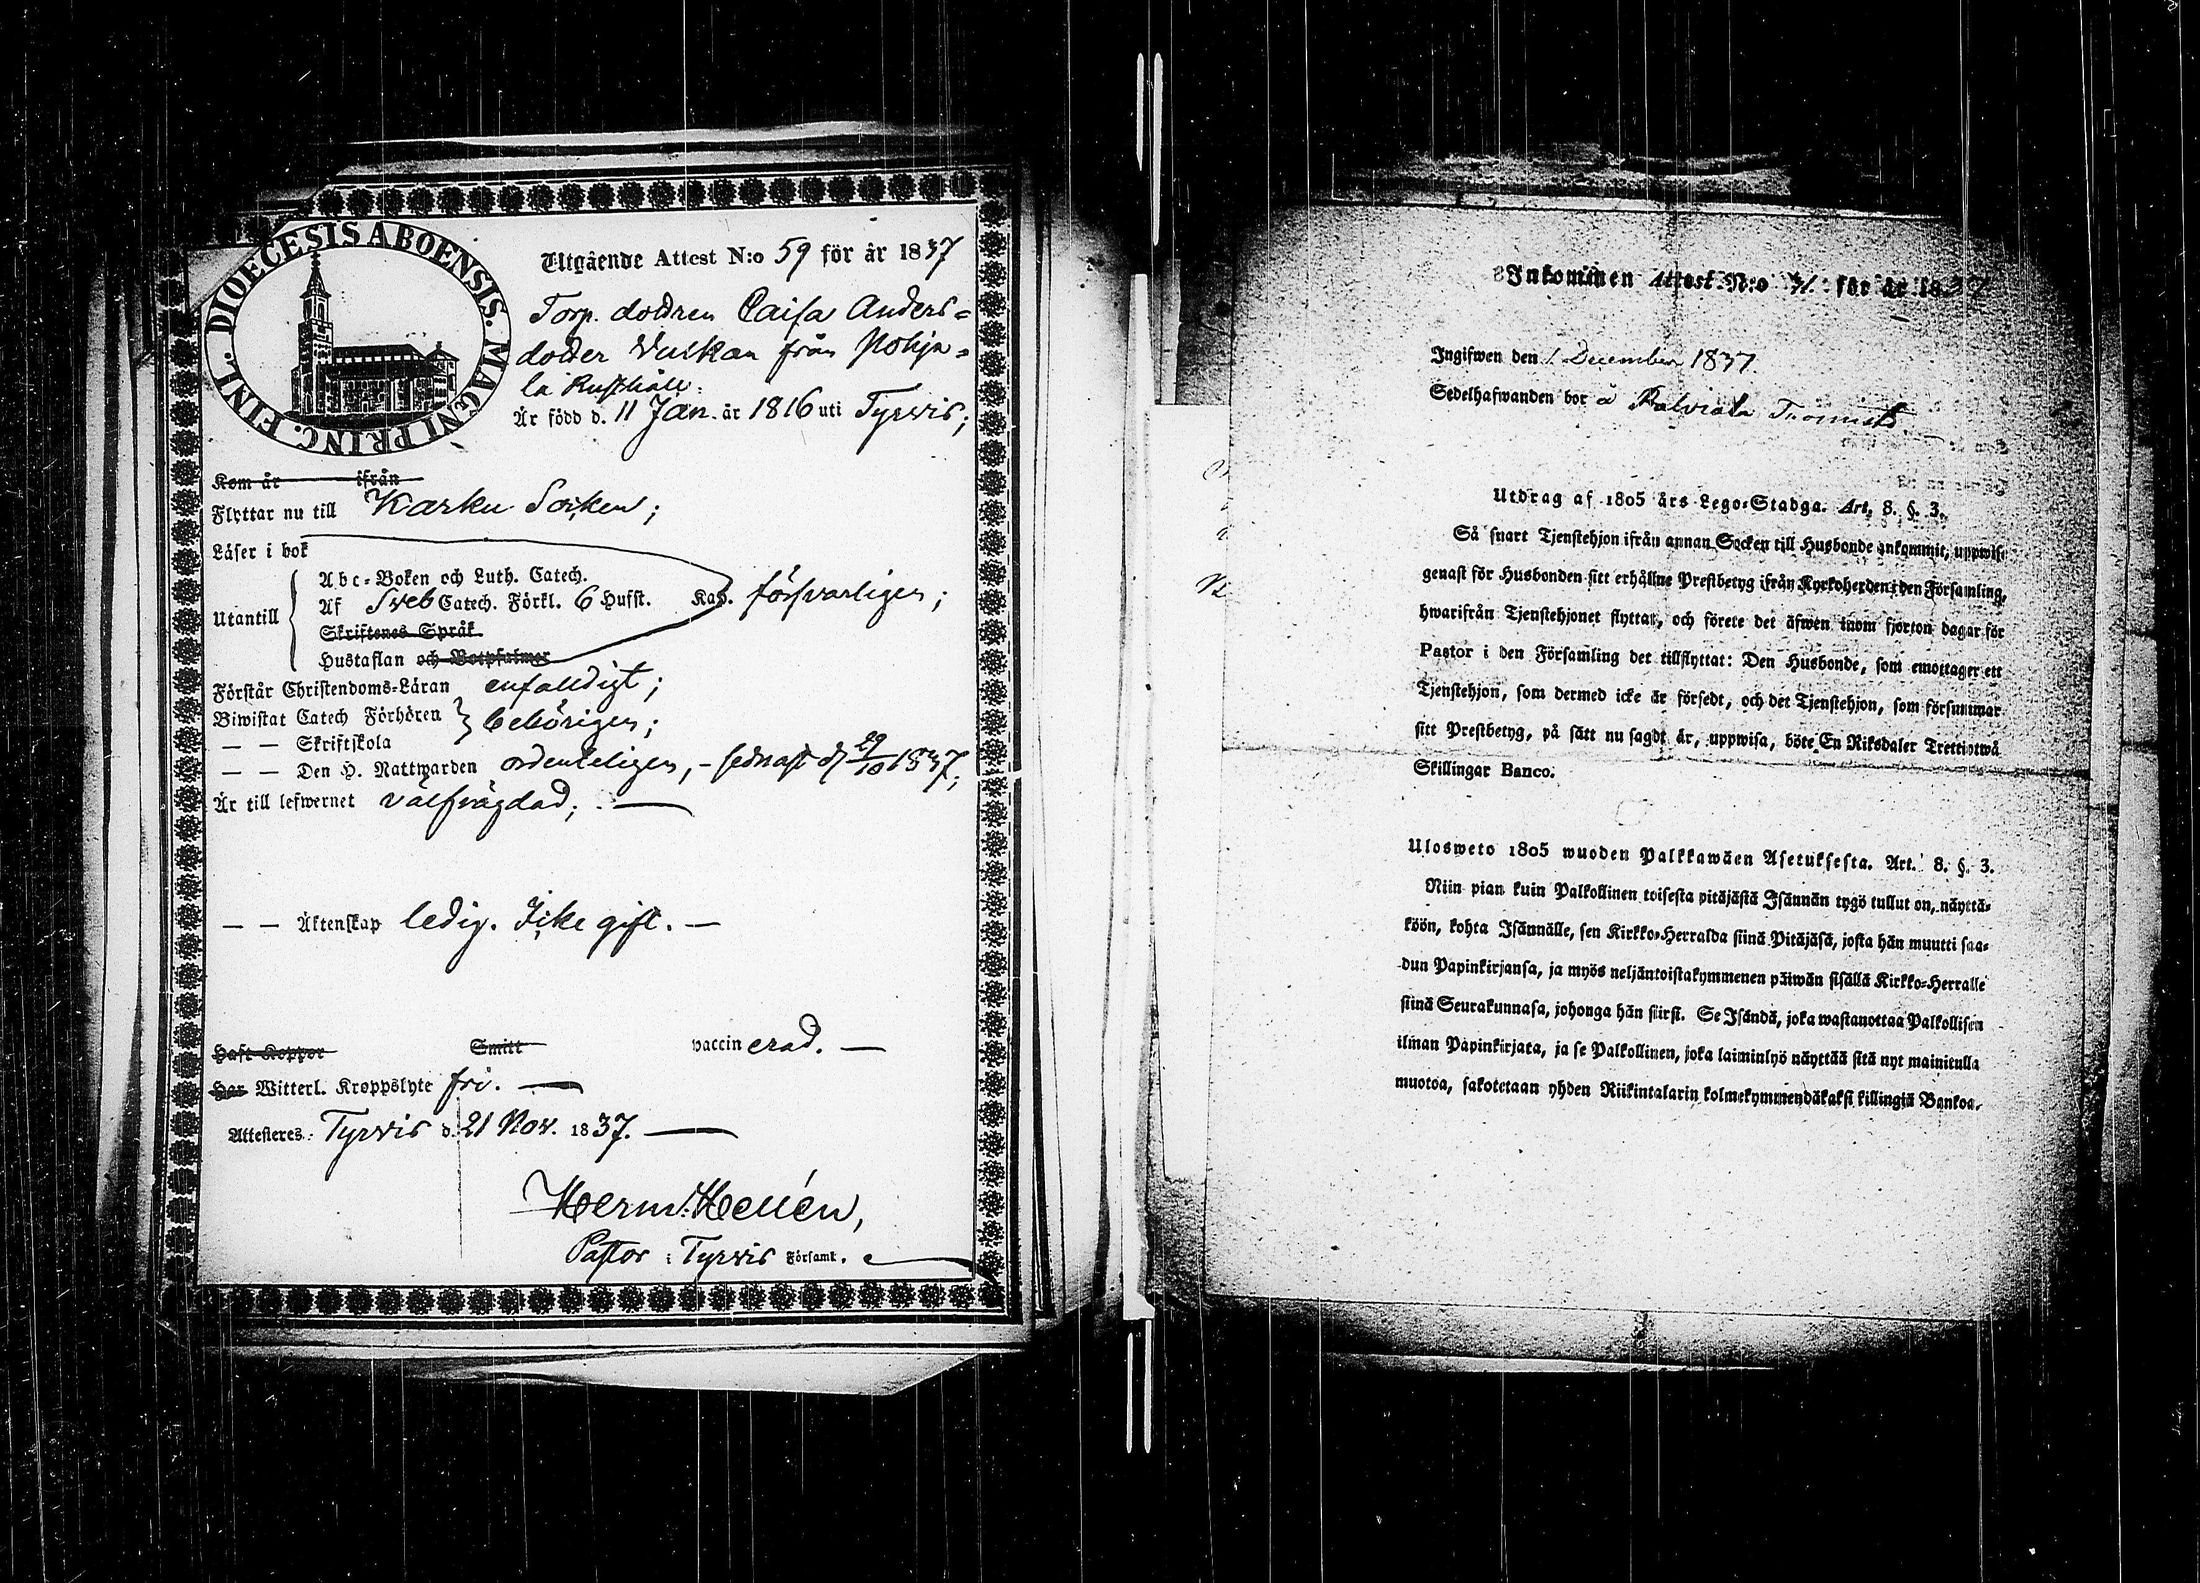 DIOECESIS ABOENSIS. MAGNI PRINC. FINL.
Utgående Attest N:o 59 för år 1837
Torp. dottren Caisa Anders=
dotter Vulkan från Pohja=
la Rusthåll.
Är född d. 11 Jan. år 1816 uti Tyrvis;
Kom år ifrån
Flyttar nu till Karku Socken;
Läser i bok
Utantill
Abc-Boken och Luth. Catech.
Af Sveb Catech. Förkl. 6 Hufst. Kap. försvarligen;
Skriftenes Språk
Hustaflan och Botpsalmer
Förstår Christendoms-Läran enfaldigt;
Biwistat Catech Förhören
— — Skriftskola
behörigen;
— — Den H. Nattwarden ordenteligen, - sednast d. 29/10 1837;
Är till lefwernet välfrägdad; —
— — Äktenskap ledig. Icke gift. —
Haft Koppor Smitt vaccinerad. —
Har Witterl. Kroppslyte fri. —
Attesteres: Tyrvis d. 21 Nov. 1837. —
Herm. Hellén,
Pastor i Tyrvis Församl.
Inkommen Attest N:o för år 1837
Ingifwen den 1 December 1837.
Sedelhafwanden bor å
Utdrag af 1805 års Lego-Stadga. Art. 8. §. 3.
Så snart Tjenstehjon ifrån annan Socken till Husbonde ankommit, uppwise
genast för Husbonden sitt erhållne Prestbetyg ifrån Kyrkoherden i den Församling,
hwarifrån Tjenstehjonet flyttat, och förete det äfwen inom fjorton dagar för
Pastor i den Församling det tillflyttat: Den Husbonde, som emottager ett
Tjenstehjon, som dermed icke är försedt, och det Tjenstehjon, som försummar
sitt Prestbetyg, på sätt nu sagdt är, uppwisa, böte En Riksdaler Trettiotwå
Skillingar Banco.
Ulosweto 1805 wuoden Palkkawäen Asetuksesta. Art. 8. §. 3.
Niin pian kuin Palkollinen toisesta pitäjästä Isännän tygö tullut on, näyttä-
köön, kohta Isännälle, sen Kirkko-Herralda siinä Pitäjäsä, josta hän muutti saa-
dun Papinkirjansa, ja myös neljäntoistakymmenen päiwän sisällä Kirkko-Herralle
siinä Seurakunnasa, johonga hän siirst. Se Isändä, joka wastanottaa Palkollisen
ilman Papinkirjata, ja se Palkollinen, joka laiminlyö näyttää sitä nyt mainitulla
muotoa, sakotetaan yhden Riikintalarin kolmekymmendäkaksi killingiä Bankoa.